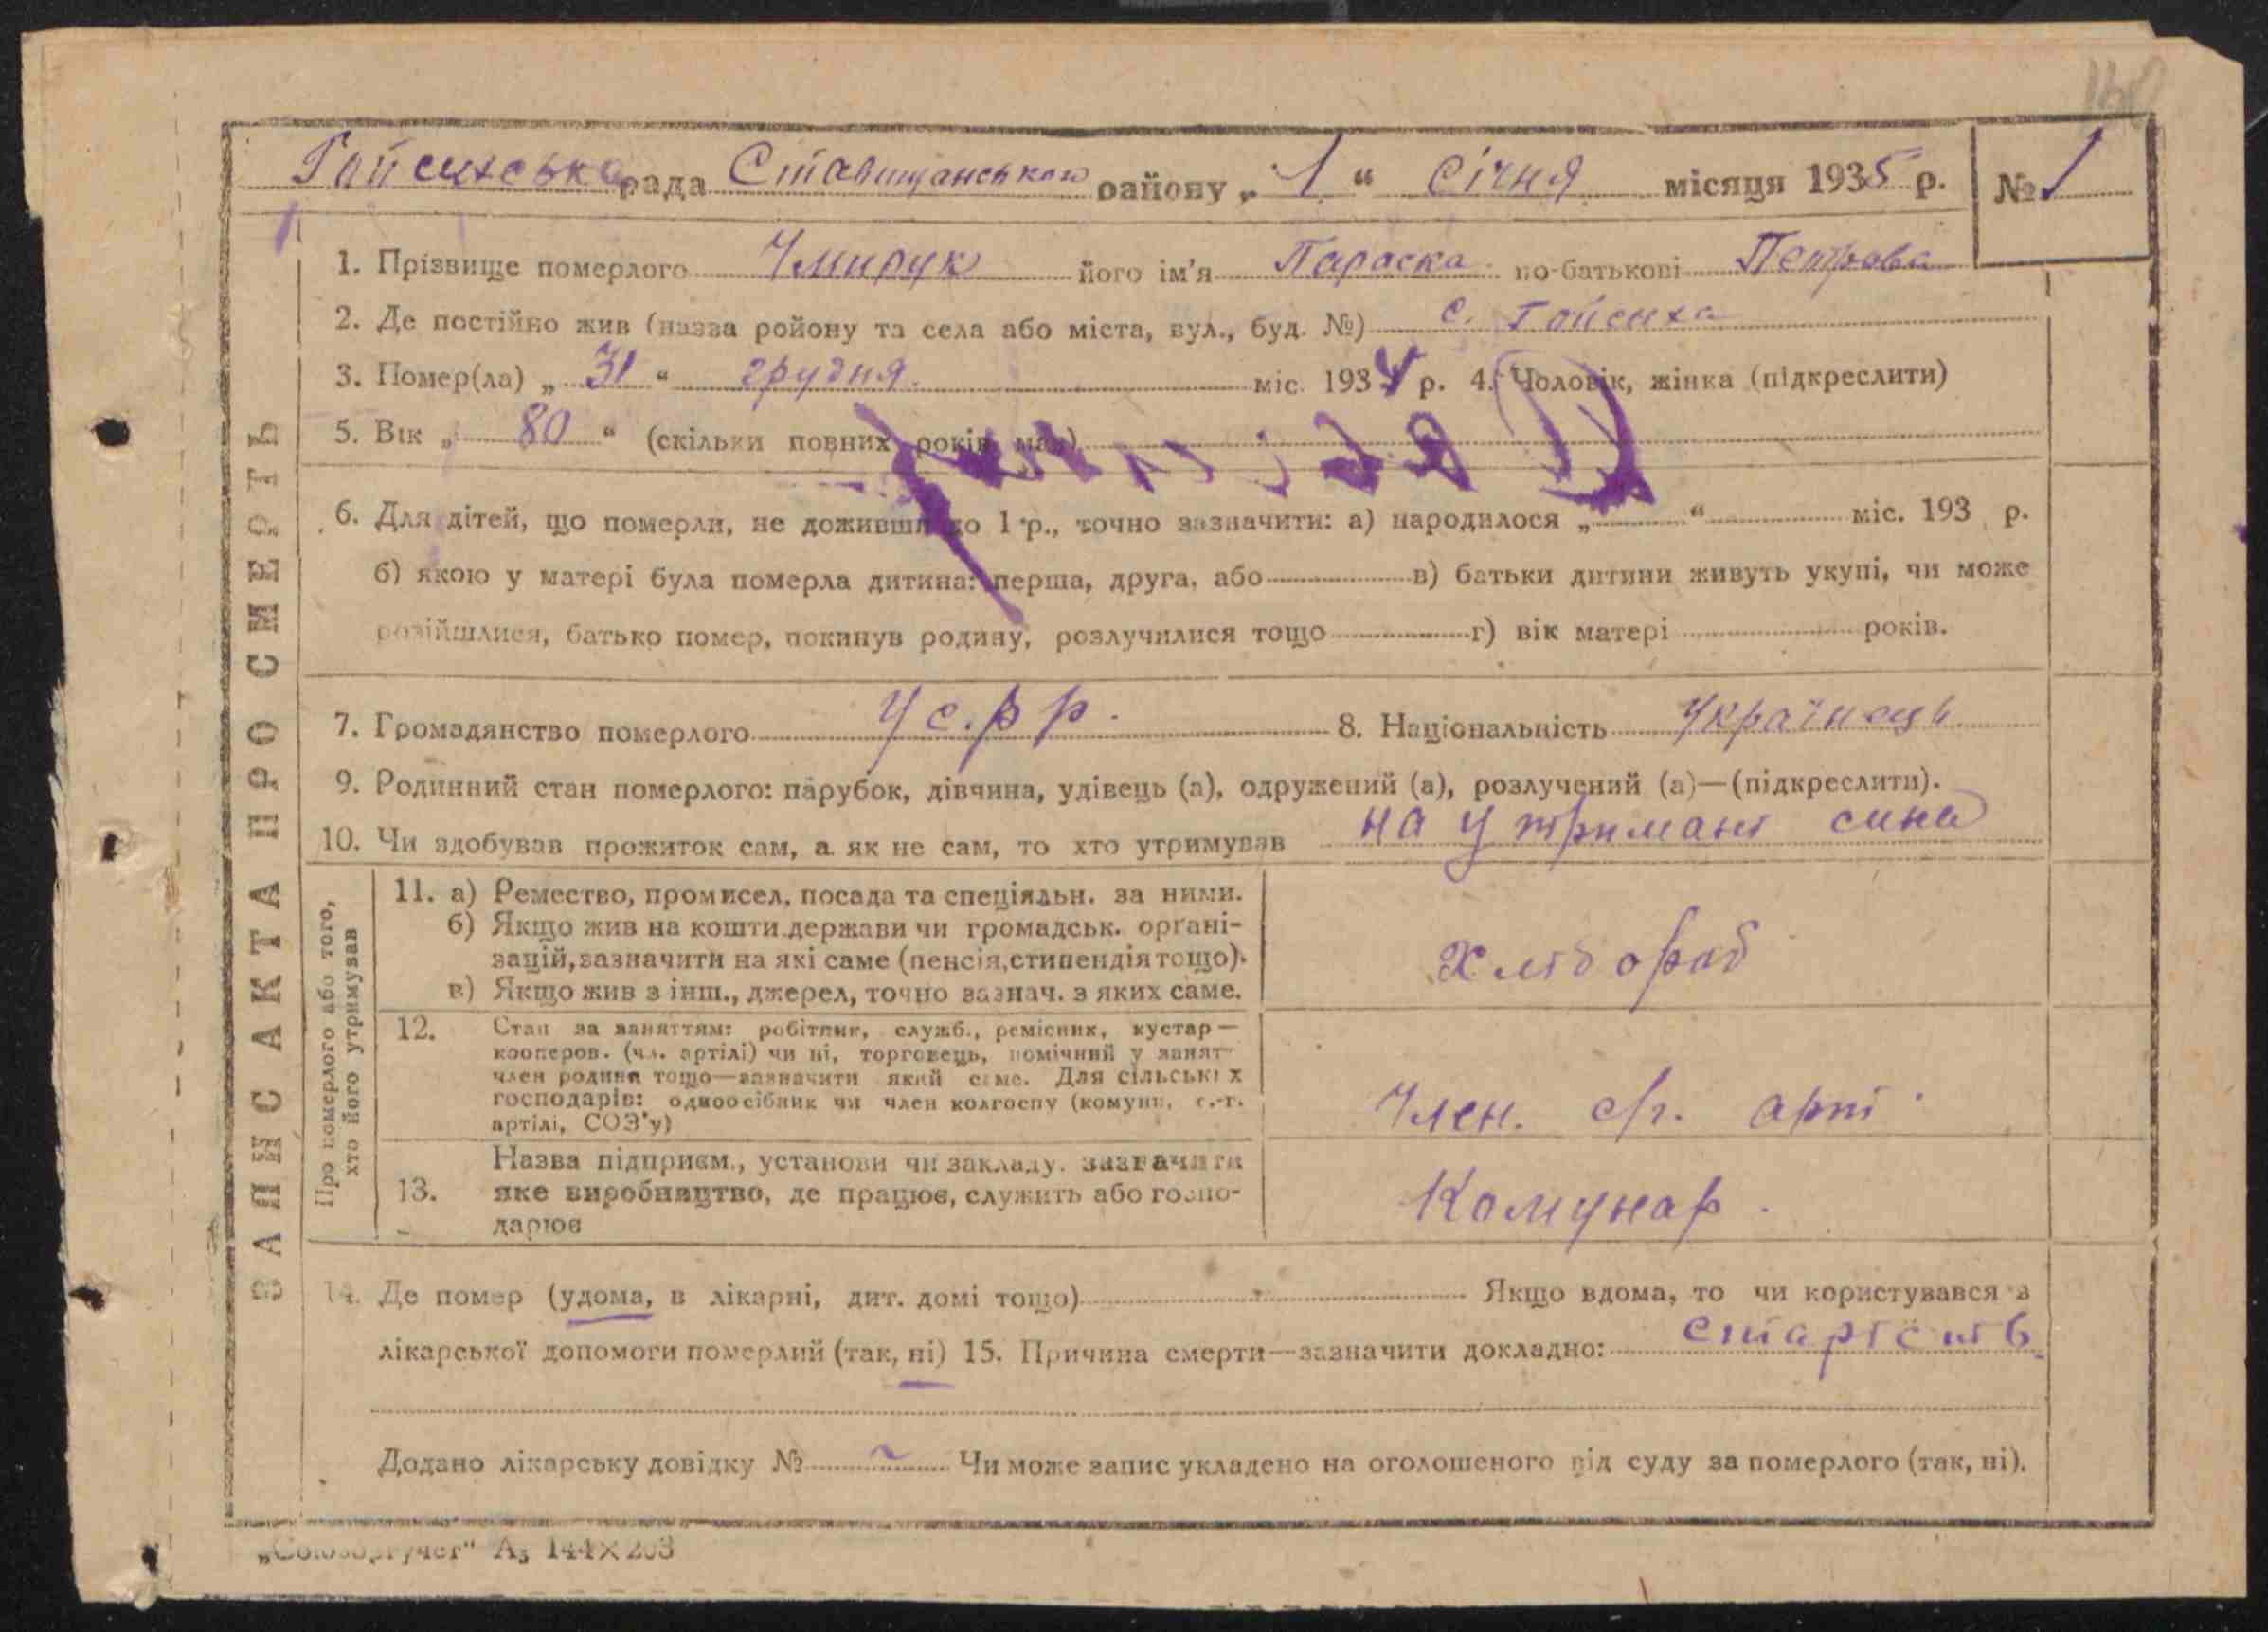 160
Гойсихська рада Ставищанського району „ 1 “ січня місяця 1935 р. № 1
1. Прізвище померлого Чмирук його ім'я Параска по-батькові Петрова
2. Де постійно жив (назва ройону та села або міста, вул., буд. №) с. Гойсиха
3. Помер(ла) „ 31 “ грудня міс. 1934 р. 4. Чоловік, жінка (підкреслити)
5. Вік „ 80 “ (скільки повних років мав)
6. Для дітей, що померли, не доживши до 1 р., точно зазначити: а) народилося „ “ міс. 193 р.
б) якою у матері була померла дитина: перша, друга, або в) батьки дитини живуть укупі, чи може
розійшлися, батько помер, покинув родину, розлучилися тощо г) вік матері років.
7. Громадянство померлого УС.РР. 8. Національність Українець
9. Родинний стан померлого: парубок, дівчина, удівець (а), одружений (а), розлучений (а)—(підкреслити).
10. Чи здобував прожиток сам, а як не сам, то хто утримував на утримані сина
ЗАПИС АКТА ПРО СМЕРТЬ
Про померлого або того,
хто його утримував
11. а) Ремество, промисел, посада та спеціяльн. за ними.
б) Якщо жив на кошти держави чи громадськ. орґані-
зацій, зазначити на які саме (пенсія, стипендія тощо).
в) Якщо жив з інш., джерел, точно зазнач. з яких саме.
Хлібороб
12. Стан за заняттям: робітник, служб., ремісник, кустар—
кооперов. (чл. артілі) чи ні, торговець, помічний у занят
член родини тощо—зазначити який саме. Для сільських
господарів: одноосібник чи член колгоспу (комуни, с.-г.
артілі, СОЗ'у)
Член. с/г. арті
13. Назва підприєм., установи чи закладу, зазначити
яке виробництво, де працює, служить або госпо-
дарює
Комунар.
14. Де помер (удома, в лікарні, дит. домі тощо) Якщо вдома, то чи користувався з
лікарської допомоги померлий (так, ні) 15. Причина смерти—зазначити докладно: старість
Додано лікарську довідку № ~ Чи може запис укладено на оголошеного від суду за померлого (так, ні).
„Союзоргучет“ А₅ 144×203